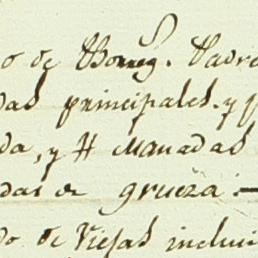 o de Borreg.s Padre
das principales. y p
da, y H Manadas
das de grueza =
do de Viejas inclui